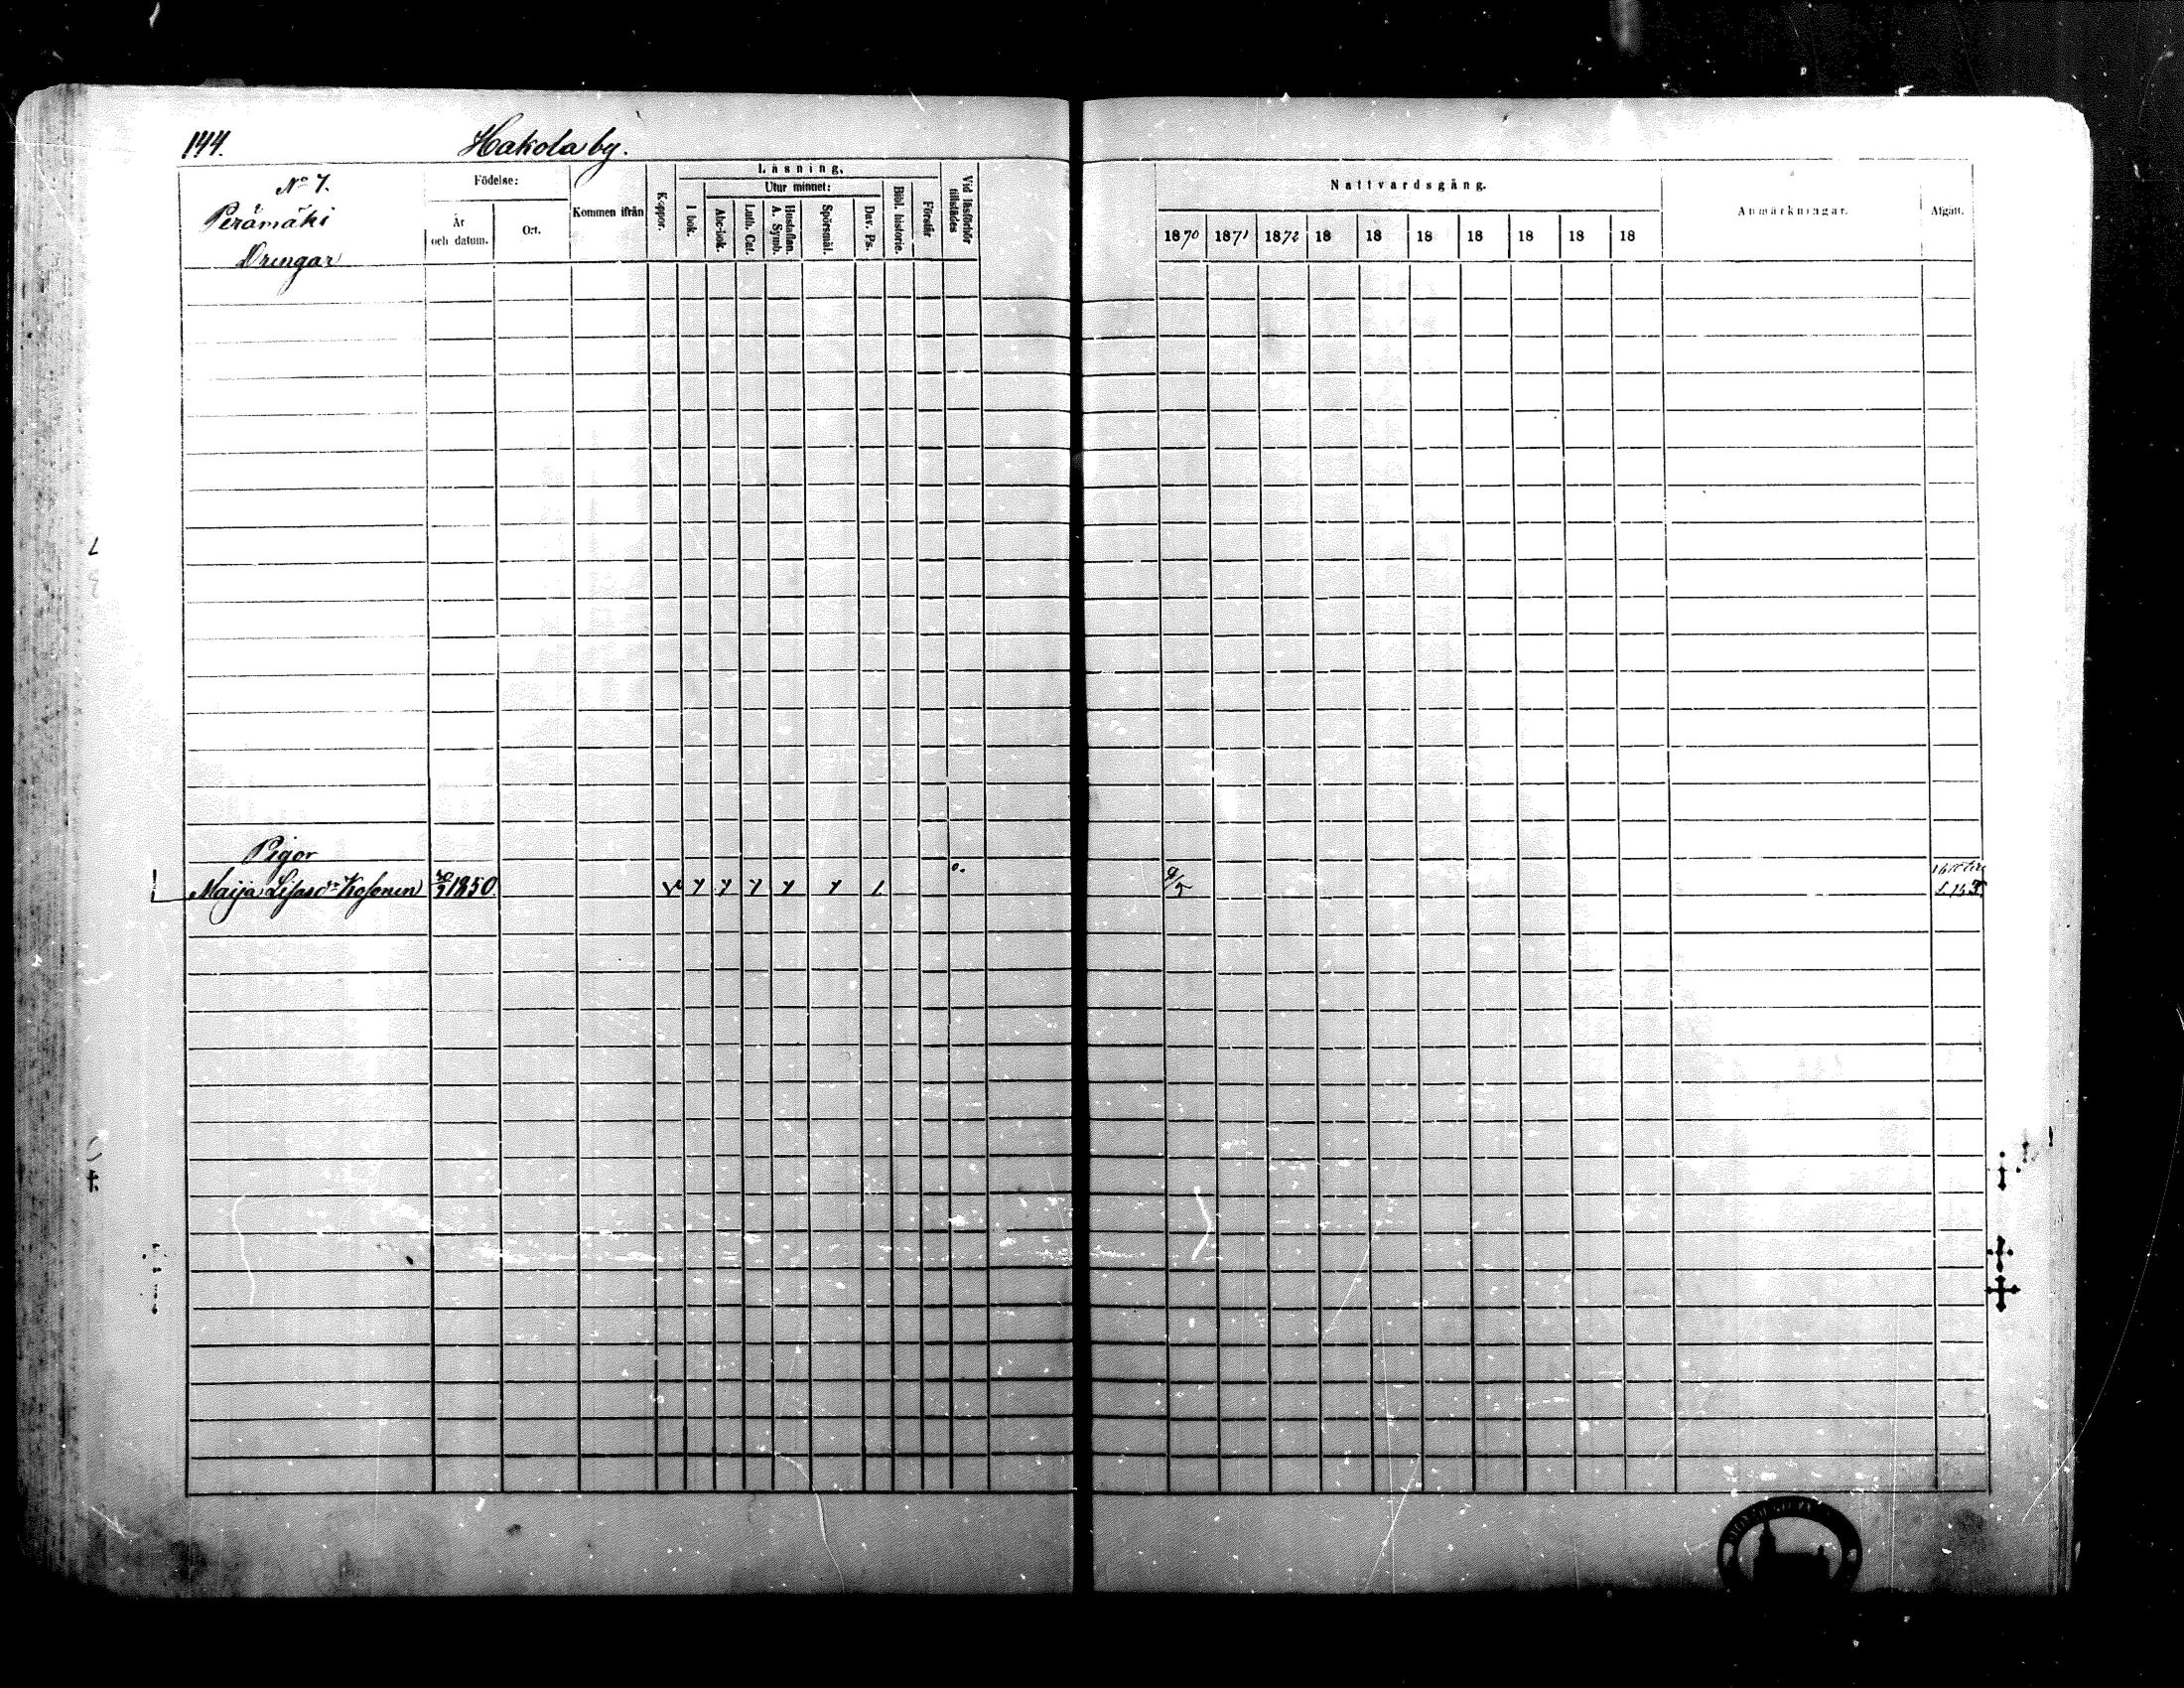 144.
Hakola by.
No 7.
Perämäki
Drengar
Födelse:
År
och datum.
Ort.
Kommen ifrån
Koppor.
Läsning.
I bok.
Utur minnet:
Abc-bok.
Luth. Cat.
Hustaflan.
A. Symb.
Spörsmål.
Dav. Ps.
Bibl. historie.
Förstår
Vid läsförhör
tillstädes
Nattvardsgång.
1870 1871 1872 18 18 18 18 18 18 18
Anmärkningar.
Afgått.
Pigor
Maija Lisasdr Kosonen 1850.